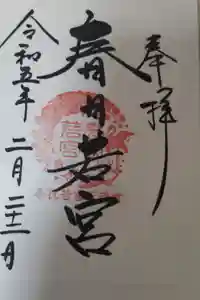 奉拝
春日若宮
令和五年
二月二十二日